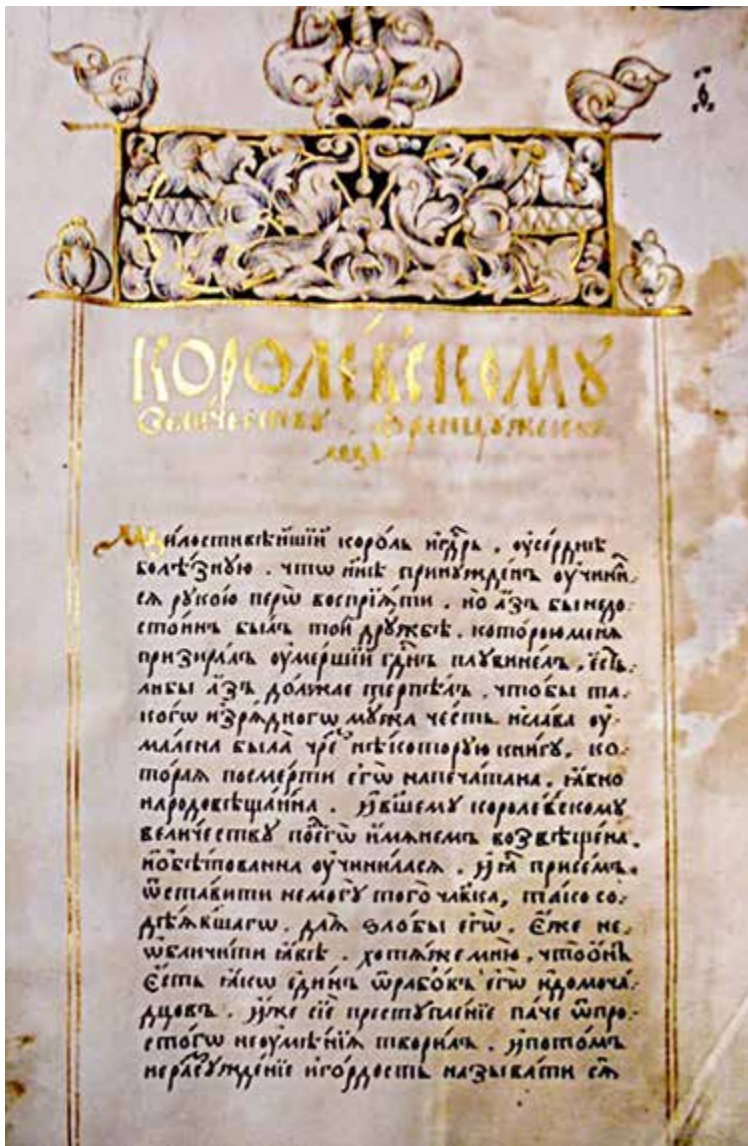 КОРОЛЕ́ВСКОМУ
Вели́честву Францꙋ́жскомꙋ
лица̀
Ми́лостивѣ́йшїй коро́ль и҆гдⷭ҇рь . ᲂу҆се́рднѣ
болѣ́знꙋю . что̀ нн҃ѣ принꙋжде́нъ ᲂу҆чини́л
ся рꙋко́ю перѡ̀ воспрїѧ́ти . но а҆́зъ бы недо-
сто́инъ бы́лъ то́й дрꙋ́жбѣ . кото́рою меня
призира́лъ ᲂу҆ме́ршїй гдⷭ҇нъ плꙋвине́лъ , є҆́сть-
ли бы а҆́зъ до́лжае терпѣ́лъ . что́бы та-
когѡ и҆зрѧ́дногѡ мꙋ́жа че́сть и҆сла́ва ᲂу҆-
ма́лена была̀ чре҇з нѣ́которꙋю кни́гꙋ , ко-
то́рая посме́рти є҆гѡ̀ напеча́тана , ꙗ҆́вно
наро́довѣщанна . и҆ в҃шемꙋ короле́вскомꙋ
вели́чествꙋ под̾ є҆гѡ̀ и҆́мянемъ возвѣще́на .
и҆ ѡ҆бѣтованна ᲂу҆чини́лася . и҆ ꙗ҆̀ присе́мъ .
ѡ҆ста́вити немогꙋ̀ того̀ члв҃ка , та́ко со-
дѣ́явшагѡ . длѧ̀ ѕло́бы є҆гѡ̀ . є҆́же не
ѡ҆бличи́ти ꙗ҆́вѣ . хотѧ́же мню̀ , что ѻ҆́нъ
є҆́сть ꙗ҆́кѡ є҆ди́нъ ѿ рабо́въ є҆гѡ̀ и҆ домоча́-
дцовъ . и҆́же сїѐ престꙋпле́нїе па́че ѿ про-
стогѡ неᲂумѣ́нїѧ твори́лъ . и҆ пото́мъ
неразсꙋжде́нїе и҆го́рдость называ́ти сѧ̀